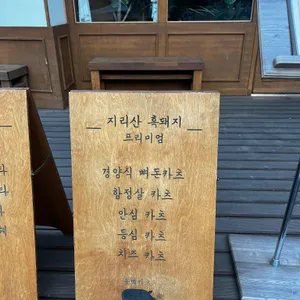 지리산 흑돼지
프리미엄
경양식 뼈돈카츠
항정살 카츠
안심 카츠
등심 카츠
치즈 카츠